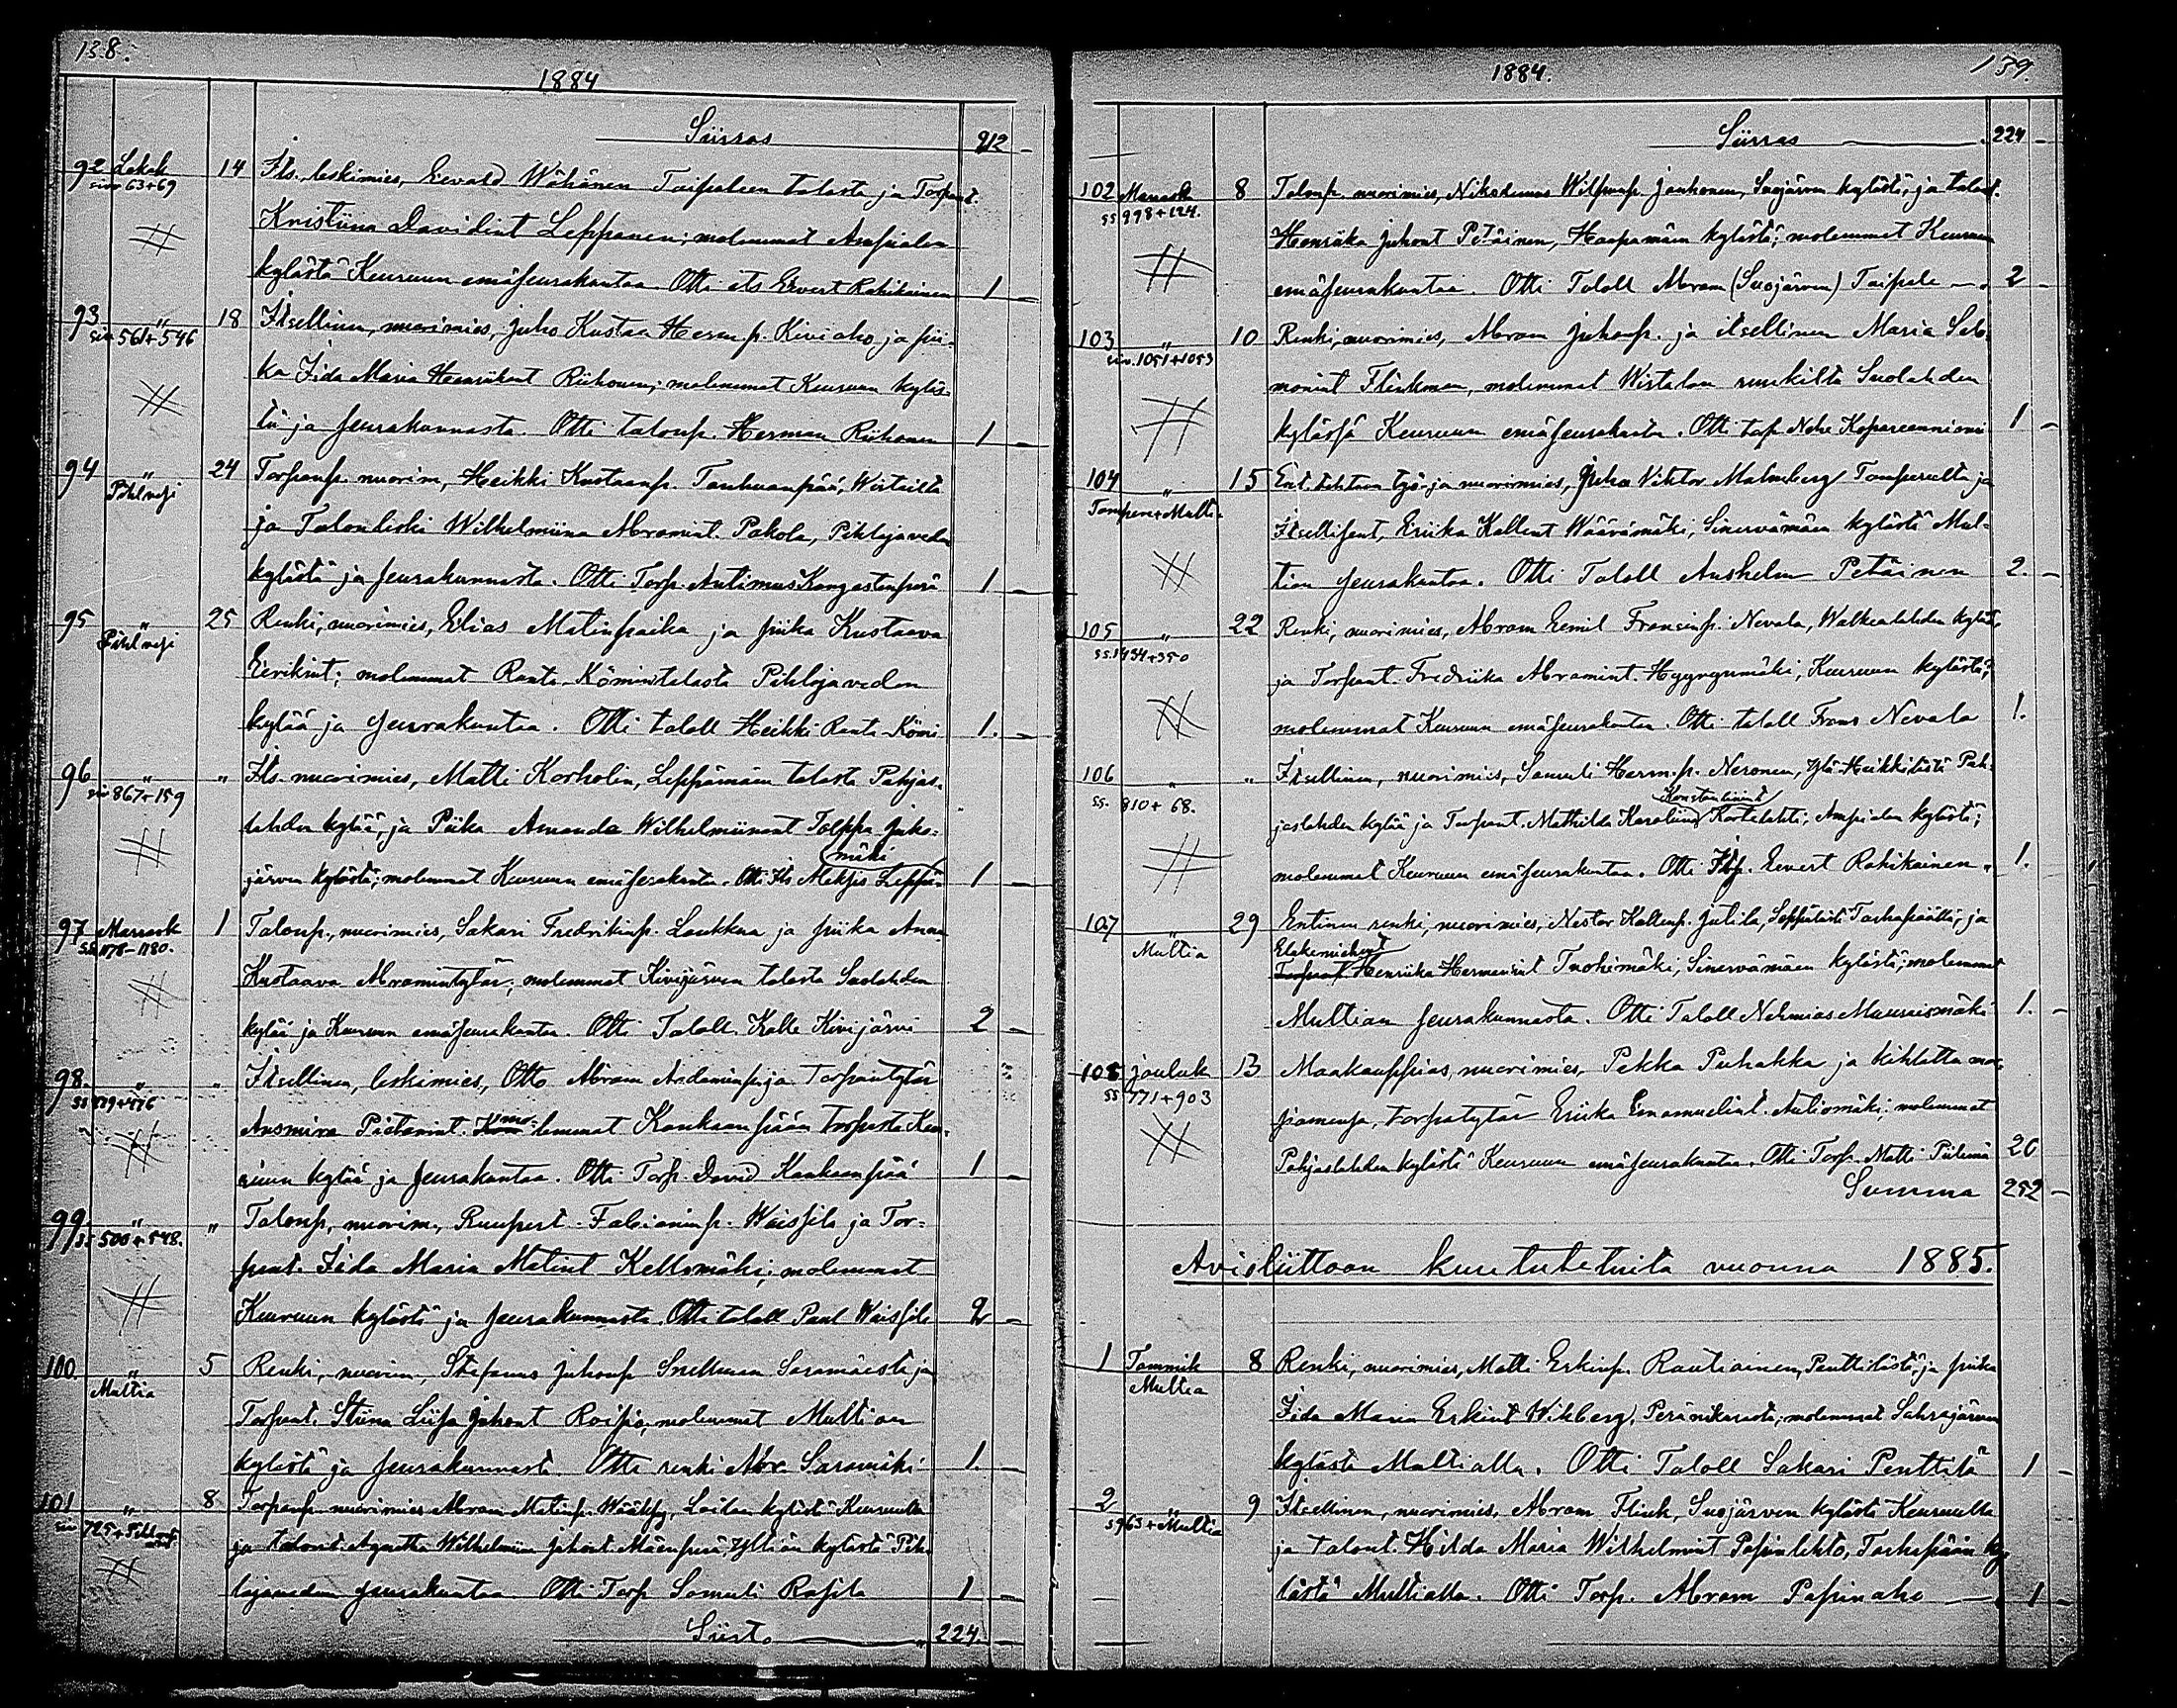 138.
1884
Siirros 212 -
92 Lokak 14 Its. leskimies, Eevald Wähänen Taipaleen talosta ja Torpant.
siv. 63+69
Kristiina Davidint Leppänen; molemmat Ampialan
kylästä Keuruun emäseurakuntaa. Otti its Eevert Rahikainen 1 -
93 " 18 Itsellinen, nuorimies, Juho Kustaa Herm.p. Kiviaho ja pii-
siv 561+546
ka Iida Maria Henrikint Riihonen; molemmat Keuruun kyläs-
tä ja seurakunnasta. Otti talonp. Herman Riihonen 1 -
94 " 24 Torpanp. nuorim, Heikki Kustaanp. Tanhuanpää, Wirtailta
Pihlvesi
ja Talonleski Wilhelmiina Abramint. Pakola, Pihlajaveden
kylästä ja seurakunnasta. Otti Torp. Antimus Kangastenperä 1 -
95 " 25 Renki, nuorimies, Elias Matinpoika ja piika Kustaava
Pihlvesi
Eerikint; molemmat Ranta-Kömintalosta Pihlajaveden
kylää ja seurakuntaa. Otti taloll Heikki Ranta-Kömi 1. -
96 " " Its. nuorimies, Matti Korholin, Leppämäen talosta Pohjas-
siv 867+159
lahden kylää, ja Piika Amanda Wilhelmiinant Talppa Juko-
mäki
järven kylästä; molemmat Keuruun emäseurakuntaa. Otti Its Aleksis Leppä- 1 -
97 Marrask 1 Talonp., nuorimies, Sakari Fredrikinp. Laukkaa ja piika Anna
ss. 1178-1180.
Kustaava Abramintytär; molemmat Kivijärven talosta Suolahden
kylää ja Keuruun emäseurakuntaa. Otti Taloll. Kalle Kivijärvi 2 -
98. " " Itsellinen, leskimies, Otto Abram Aadaminp. ja Torpantytär
ss 879+476
Ansmira Pietarint. mo-lemmat Kankaanpään torpasta Keu-
ruun kylää ja seurakuntaa. Otti Torp. David Kankaanpää 1 -
99. " " Talonp, nuorim, Ruupert Fabianinp. Waissila ja Tor-
ss 500+548.
pant. Iida Maria Matint Kellomäki; molemmat
Keuruun kylästä ja seurakunnasta. Otti taloll Paul Waissila 2 -
100 " 5 Renki, nuorim, Stefanus Juhonp Snellman Saramäestä ja
Multia
Torpant. Stiina Liisa Juhont Roisio, molemmat Multian
kylästä ja seurakunnasta. Otti renki Abr. Saramäki 1. -
101 " 8 Torpanp. nuorimies Abram Matinp. Wääkky, Loilan kylästä Keuruulla
siv 725+Pihlav.
ja talonit Agnetta Wilhelmiina Juhont Mäenperä, Yltiän kylästä Pih-
lajaveden seurakuntaa. Otti Torp Samuli Rasila 1 -
Siirto " 224. -
139.
1884.
Siirros 224 -
102 Marrask 8 Talonp. nuorimies, Nikodemus Wilpunp. Jouhonen, Suojärven kylästä, ja talont.
ss 998+124.
Henriika Juhont Petäinen, Haapamäen kylästä; molemmat Keuruun
emäseurakuntaa. Otti Taloll Abram (Suojärven) Taipale 2 -
103 " 10 Renki, nuorimies, Abram Juhonp. ja itsellinen Maria Salo-
siv. 1051+1053
monint Flinkman, molemmat Wistalan ruukilta Suolahden
kylässä Keuruun emäseurakuntaa. Otti torp Nehe 1 -
104 " 15 Ent. tehtaan työ- ja nuorimies, Juho Viktor Malmberg Tampereelta ja
Tampere+Multi.
Itsellisent, Eriika Kallent Wäärämäki, Sinervämäen kylästä Mul-
tian seurakuntaa. Otti Taloll Anshelm Petäinen 2. -
105 " 22 Renki, nuorimies, Abram Eemil Fransinp. Nevala, Walkealahden kyläst.
ss. 1434+350
ja Torpant. Fredriika Abramint. Hyyrynmäki, Keuruun kylästä;
molemmat Keuruun emäseurakuntaa. Otti taloll Frans Nevala 1.
106 " " Itsellinen, nuorimies, Samuli Herm.p. Neronen, Ylä-Heikkilästä Poh-
ss. 810+68.
Konstantinint
jaslahden kylää ja Torpant. Mathilda Karoliina Kortelahti, Ampialan kylästä;
molemmat Keuruun emäseurakuntaa. Otti Itsp. Eevert Rahikainen 1.
107 " 29 Entinen renki, nuorimies, Nestor Kallenp. Jutila, Seppälästä Tarhapäältä, ja
Multia
Elakemiehent
Torpant Henriika Hermanint Tuohimäki, Sinervämäen kylästä; molemmat
Multian seurakunnasta. Otti Taloll Nehmias Maunismäki 1. -
108 Jouluk 13 Maakauppias, nuorimies, Pekka Puhakka ja kihlattu mor-
ss 771+903
siamensa, torpatytär Eriika Emanuelint. Autiomäki; molemmat
Pohjaslahden kylästä Keuruun emäseurakuntaa. Otti Torp. Matti Piilimä 20
Summa 252 -
Avioliittoon kuulutetuita vuonna 1885.
1 Tammik 8 Renki, nuorimies, Matti Erkinp. Rautiainen, Penttilästä ja piika
Multia
Iida Maria Erkint Wihberg, Peränikarasta; molemmat Sahrajärven
kylästä Multialla. Otti Taloll Sakari Penttilä 1 -
2 " 9 Itsellinen, nuorimies, Abram Flink, Suojärven kylästä Keuruulla
s 963+Multia
ja talont. Hilda Maria Wilhelmint Papinlehto, Tarhapään ky-
lästä Multialla. Otti Torp. Abram Papinaho 1 -